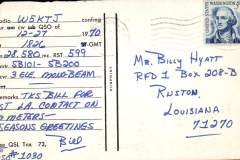 Radio W5KTJ confirming
ur CW QSO of
12-27 1970
1820 GMT
28.580 mc. RST 599
SB101 - SB200
3 ELE. MONO-BEAM
remarks TKS BILL FOR
1ST LA. CONTACT ON
10 METERS -
SEASONS GREETINGS
QSL Tnx 73, Bill
#1030
WASHINGTON
Mr. Billy Hyatt
RFD 1 Box 208-B
Ruston,
Louisiana
71270